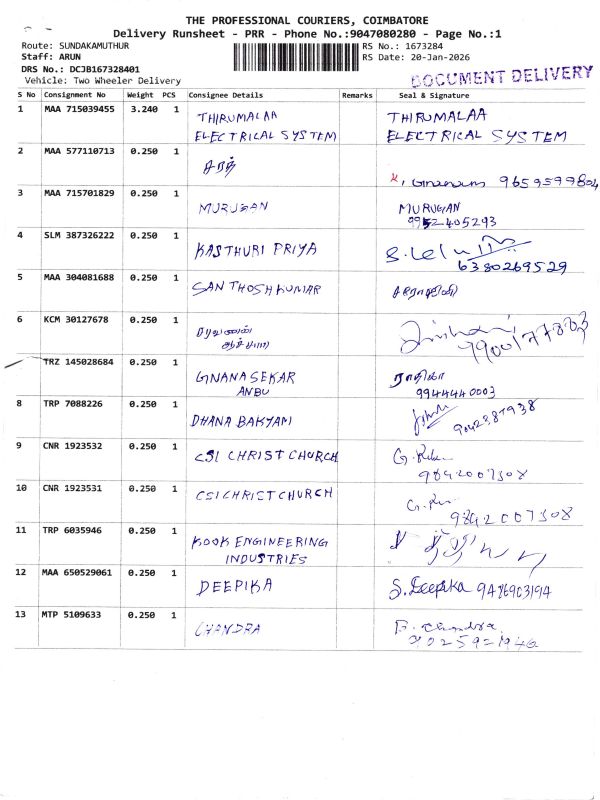 THE PROFESSIONAL COURIERS, COIMBATORE
Delivery Runsheet - PRR - Phone No.:9047080280 - Page No.:1
Route: SUNDAKAMUTHUR
RS No.: 1673284
Staff: ARUN
RS Date: 20-Jan-2026
DRS No.: DCJB167328401
Vehicle: Two Wheeler Delivery
DOCUMENT DELIVERY
S No Consignment No Weight PCS Consignee Details Remarks Seal & Signature
1 MAA 715039455 3.240 1 THIRUMALAA THIRUMALAA
ELECTRICAL SYSTEM ELECTRICAL SYSTEM
2 MAA 577110713 0.250 1 சரத்
9659599804
3 MAA 715701829 0.250 1 MURUGAN MURUGAN
9952405293
4 SLM 387326222 0.250 1 KASTHURI PRIYA
6380269529
5 MAA 304081688 0.250 1 SANTHOSHKUMAR சரோஜினி
6 KCM 30127678 0.250 1 சரவணன்
TRZ 145028684 0.250 1 GNANASEKAR ராதிகா
ANBU 9944440003
8 TRP 7088226 0.250 1 DHANA BAKYAM
9 CNR 1923532 0.250 1 CSI CHRIST CHURCH
9842007308
10 CNR 1923531 0.250 1 CSI CHRIST CHURCH
9842007308
11 TRP 6035946 0.250 1 KOOK ENGINEERING
INDUSTRIES
12 MAA 650529061 0.250 1 DEEPIKA S. Deepika 9486903194
13 MTP 5109633 0.250 1 CHANDRA